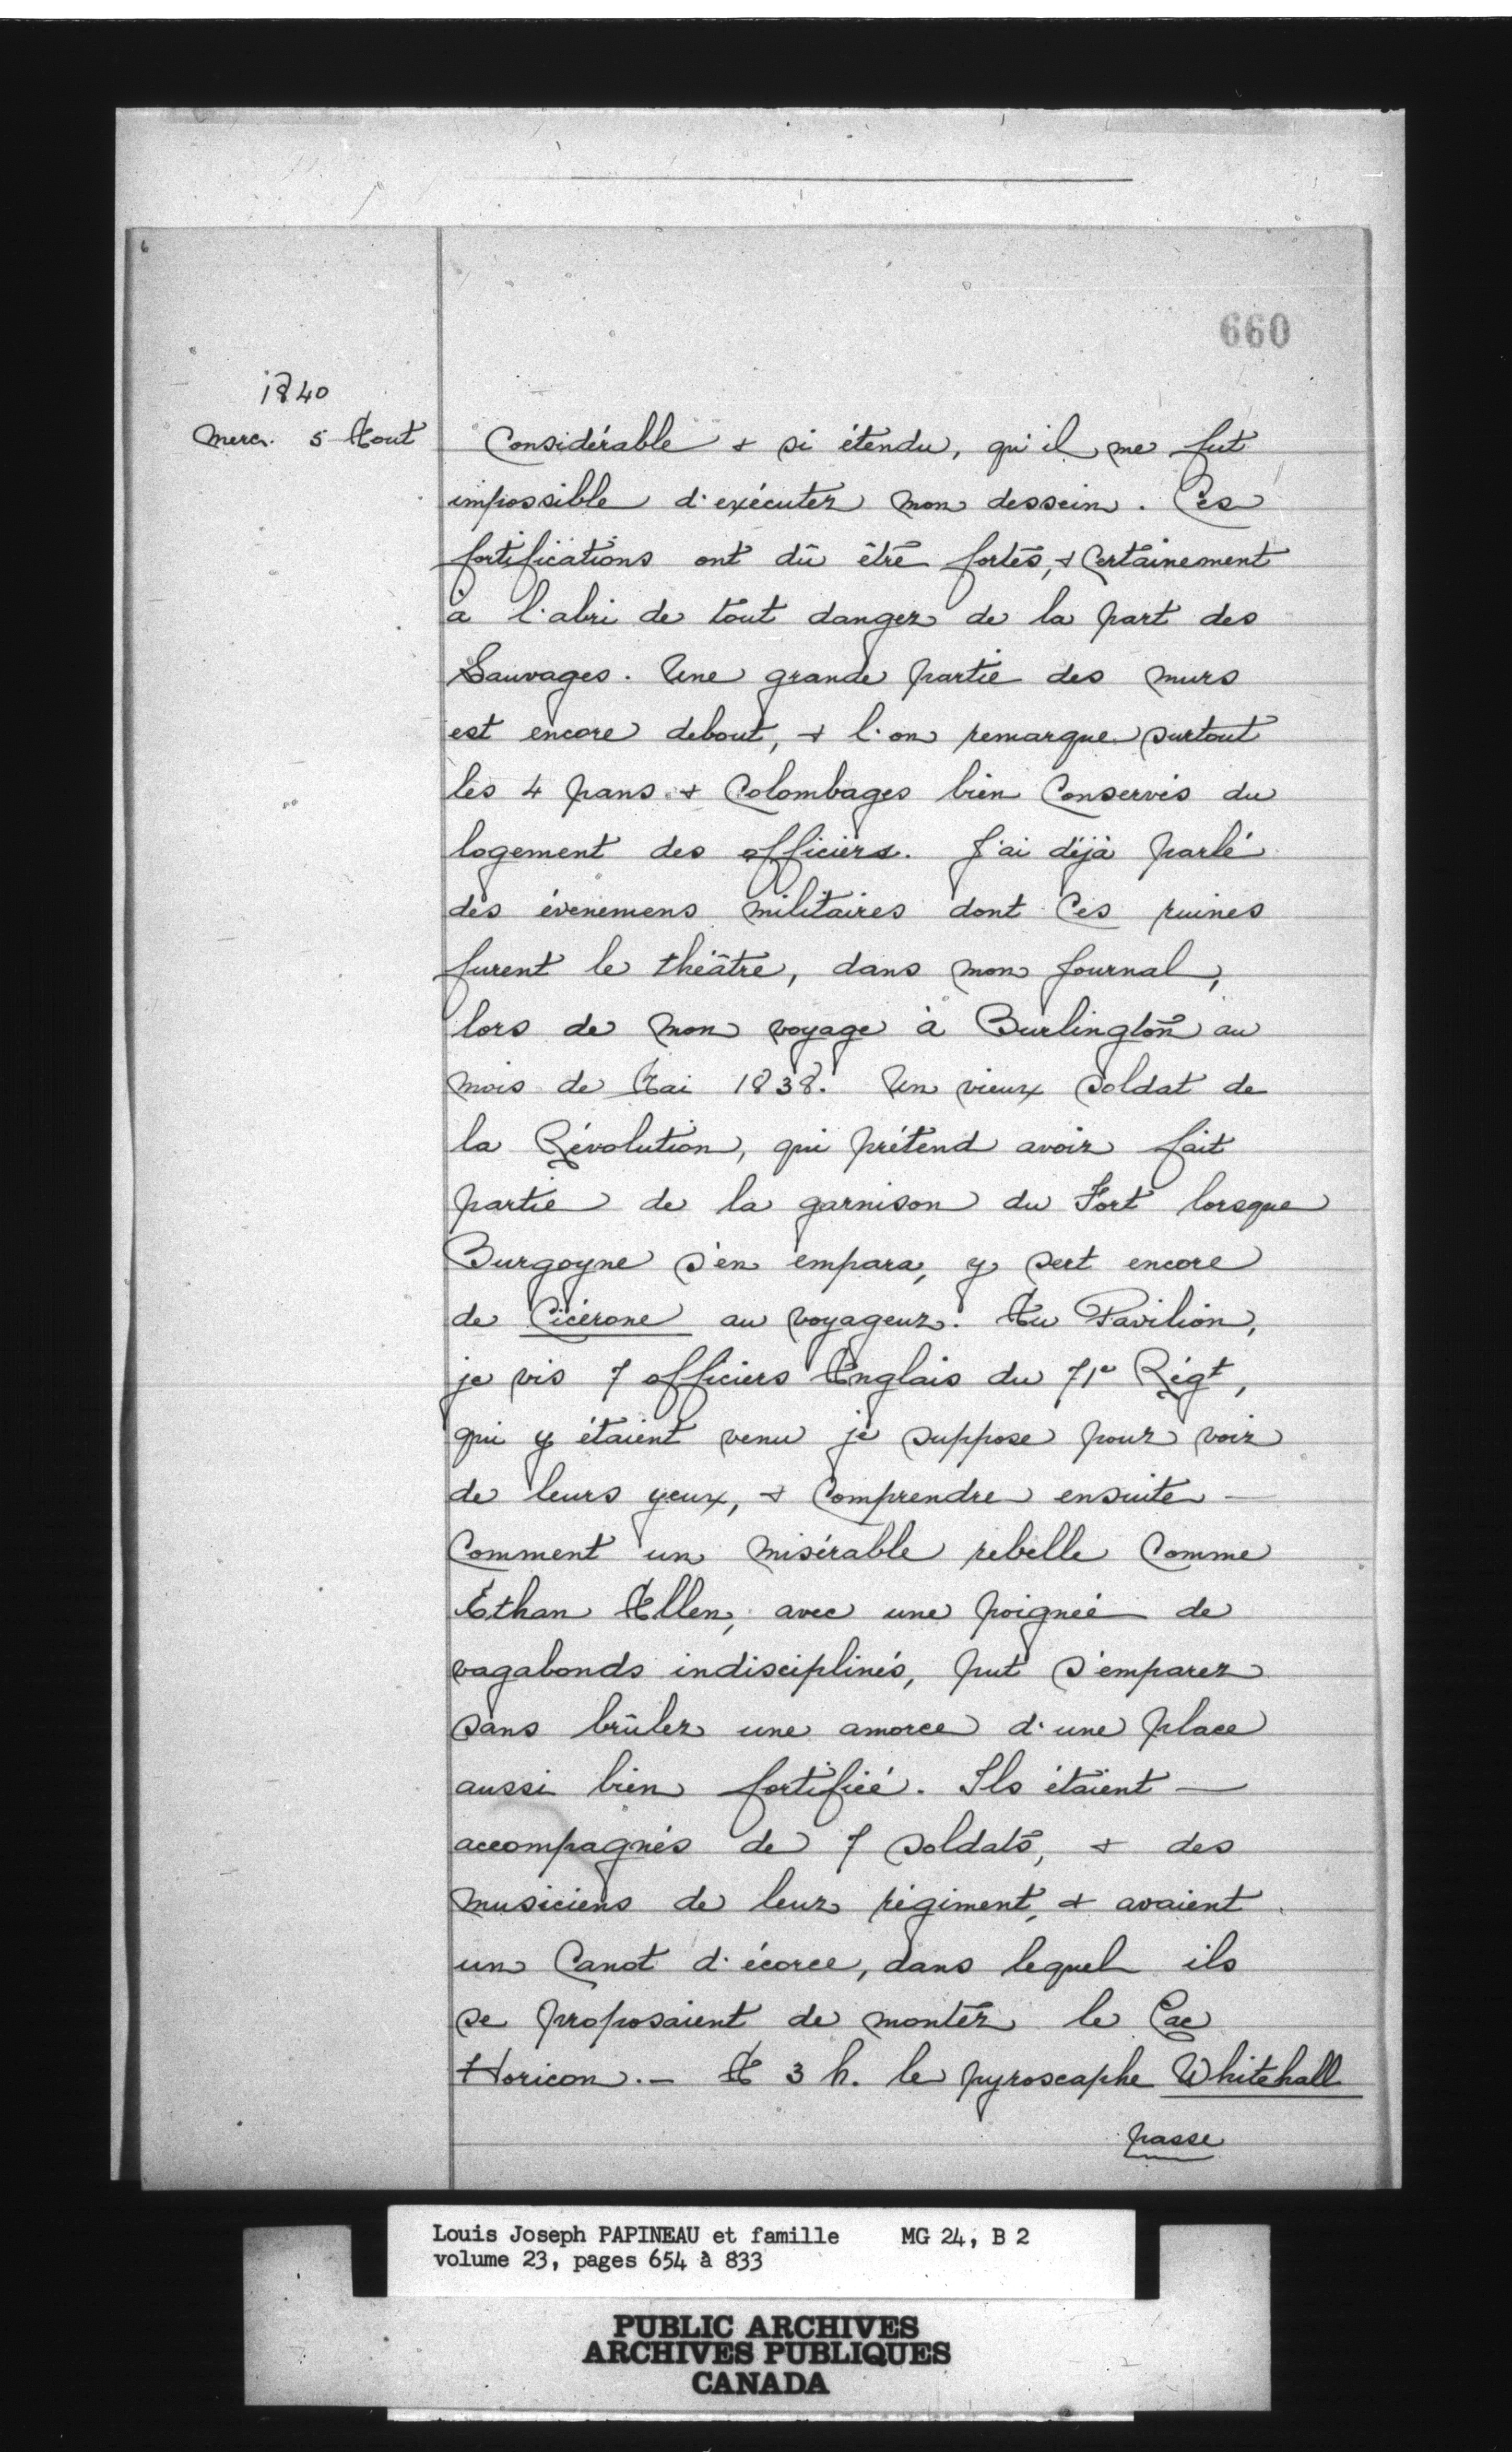 660
1840
Merc. 5 Aout
Considérable & si étendu, qu'il me fut
impossible d'exécuter mon dessein. Ces
fortifications ont dû être fortes, & certainement
à l'abri de tout danger de la part des
Sauvages. Une grande partie des murs
est encore debout, & l'on remarque surtout
les 4 pans & Colombages bien Conservés du
logement des officiers. J'ai déjà parlé
des évènemens militaires dont Ces ruines
furent le théâtre, dans mon Journal,
lors de mon voyage à Burlington au
mois de Mai 1838. Un vieux Soldat de
la Révolution, qui prétend avoir fait
partie de la garnison du Fort lorsque
Burgoyne s'en empara, y sert encore
de Cicérone au voyageur. Au Pavilion,
je vis 7 officiers Anglais du 71e Régt,
qui y étaient venu je suppose pour voir
de leurs yeux, & Comprendre ensuite —
Comment un misérable rebelle Comme
Ethan Allen, avec une poignée de
vagabonds indisciplinés, put s'emparer
sans brûler une amorce d'une place
aussi bien fortifiée. Ils étaient —
accompagnés de 7 soldats, & des
musiciens de leur régiment, & avaient
un Canot d'écorce, dans lequel ils
se proposaient de monter le Lac
Horicon. — A 3 h. le pyroscaphe Whitehall
passe
Louis Joseph PAPINEAU et famille MG 24, B 2
volume 23, pages 654 à 833
PUBLIC ARCHIVES
ARCHIVES PUBLIQUES
CANADA